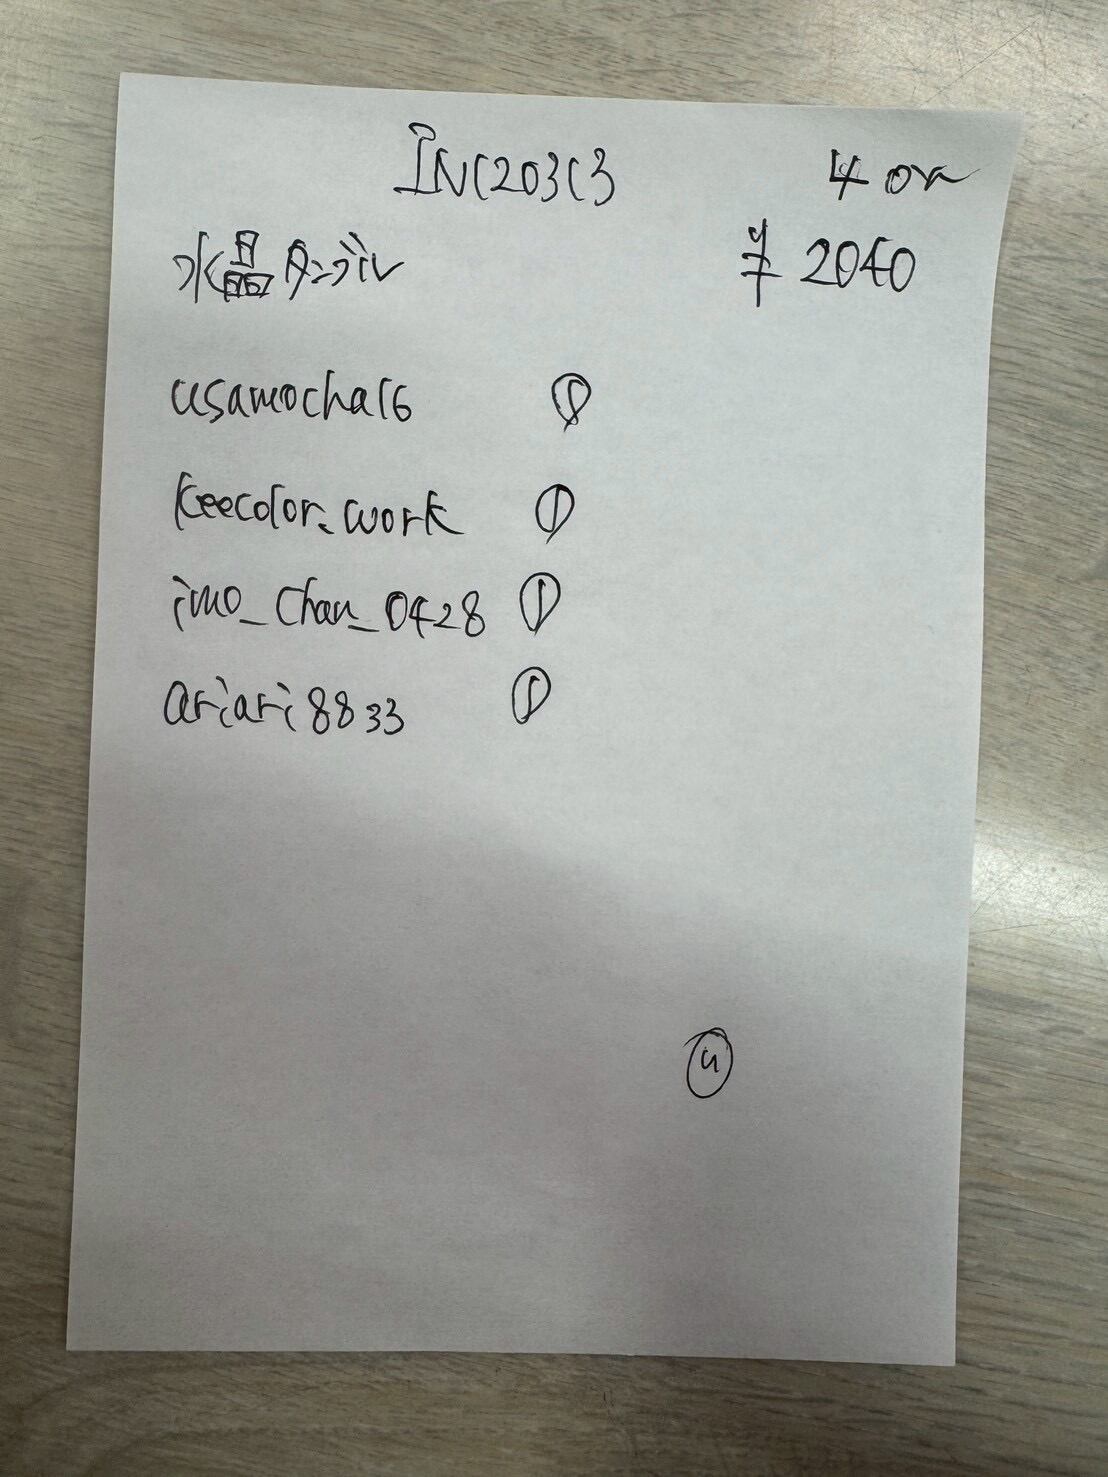 INC203C3 4 or
水晶 ¥ 2040
usamocha16 ①
keecolor.work ①
imo_chan_0428 ①
ariari8833 ①
④